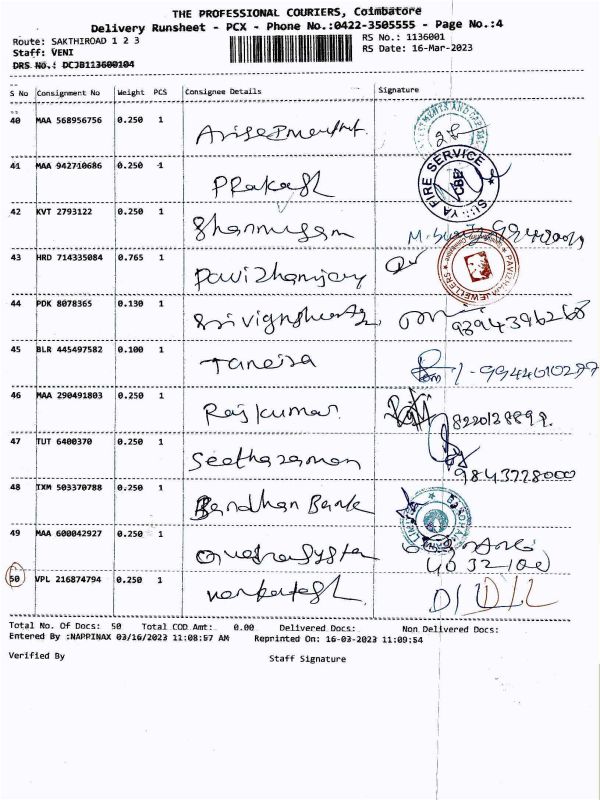 THE PROFESSIONAL COURIERS, Coimbatore
Delivery Runsheet - PCX - Phone No.:0422-3505555 - Page No.:4
Route: SAKTHIROAD 1 2 3 RS No.: 1136001
Staff: VENI RS Date: 16-Mar-2023
DRS No.: DCJB113600104
S No Consignment No Weight PCS Consignee Details Signature
40 MAA 568956756 0.250 1
41 MAA 942710686 0.250 1 Prakash SURYA FIRE SERVICE CBE
42 KVT 2793122 0.250 1 Shanmugam
43 HRD 714335084 0.765 1 PAVIZHAM JEWELLERS
44 PDK 8078365 0.130 1
45 BLR 445497582 0.100 1 Taneira 9944010297
46 MAA 290491803 0.250 1 Rajkumar 8220128899.
47 TUT 6400370 0.250 1 Seetharaman 9843728000
48 TXM 503370788 0.250 1 Bandhan Bank
49 MAA 600042927 0.250 1
50 VPL 216874794 0.250 1 Venkatesh
Total No. Of Docs: 50 Total COD Amt: 0.00 Delivered Docs: Non Delivered Docs:
Entered By :NAPPINAX 03/16/2023 11:08:57 AM Reprinted On: 16-03-2023 11:09:54
Verified By Staff Signature